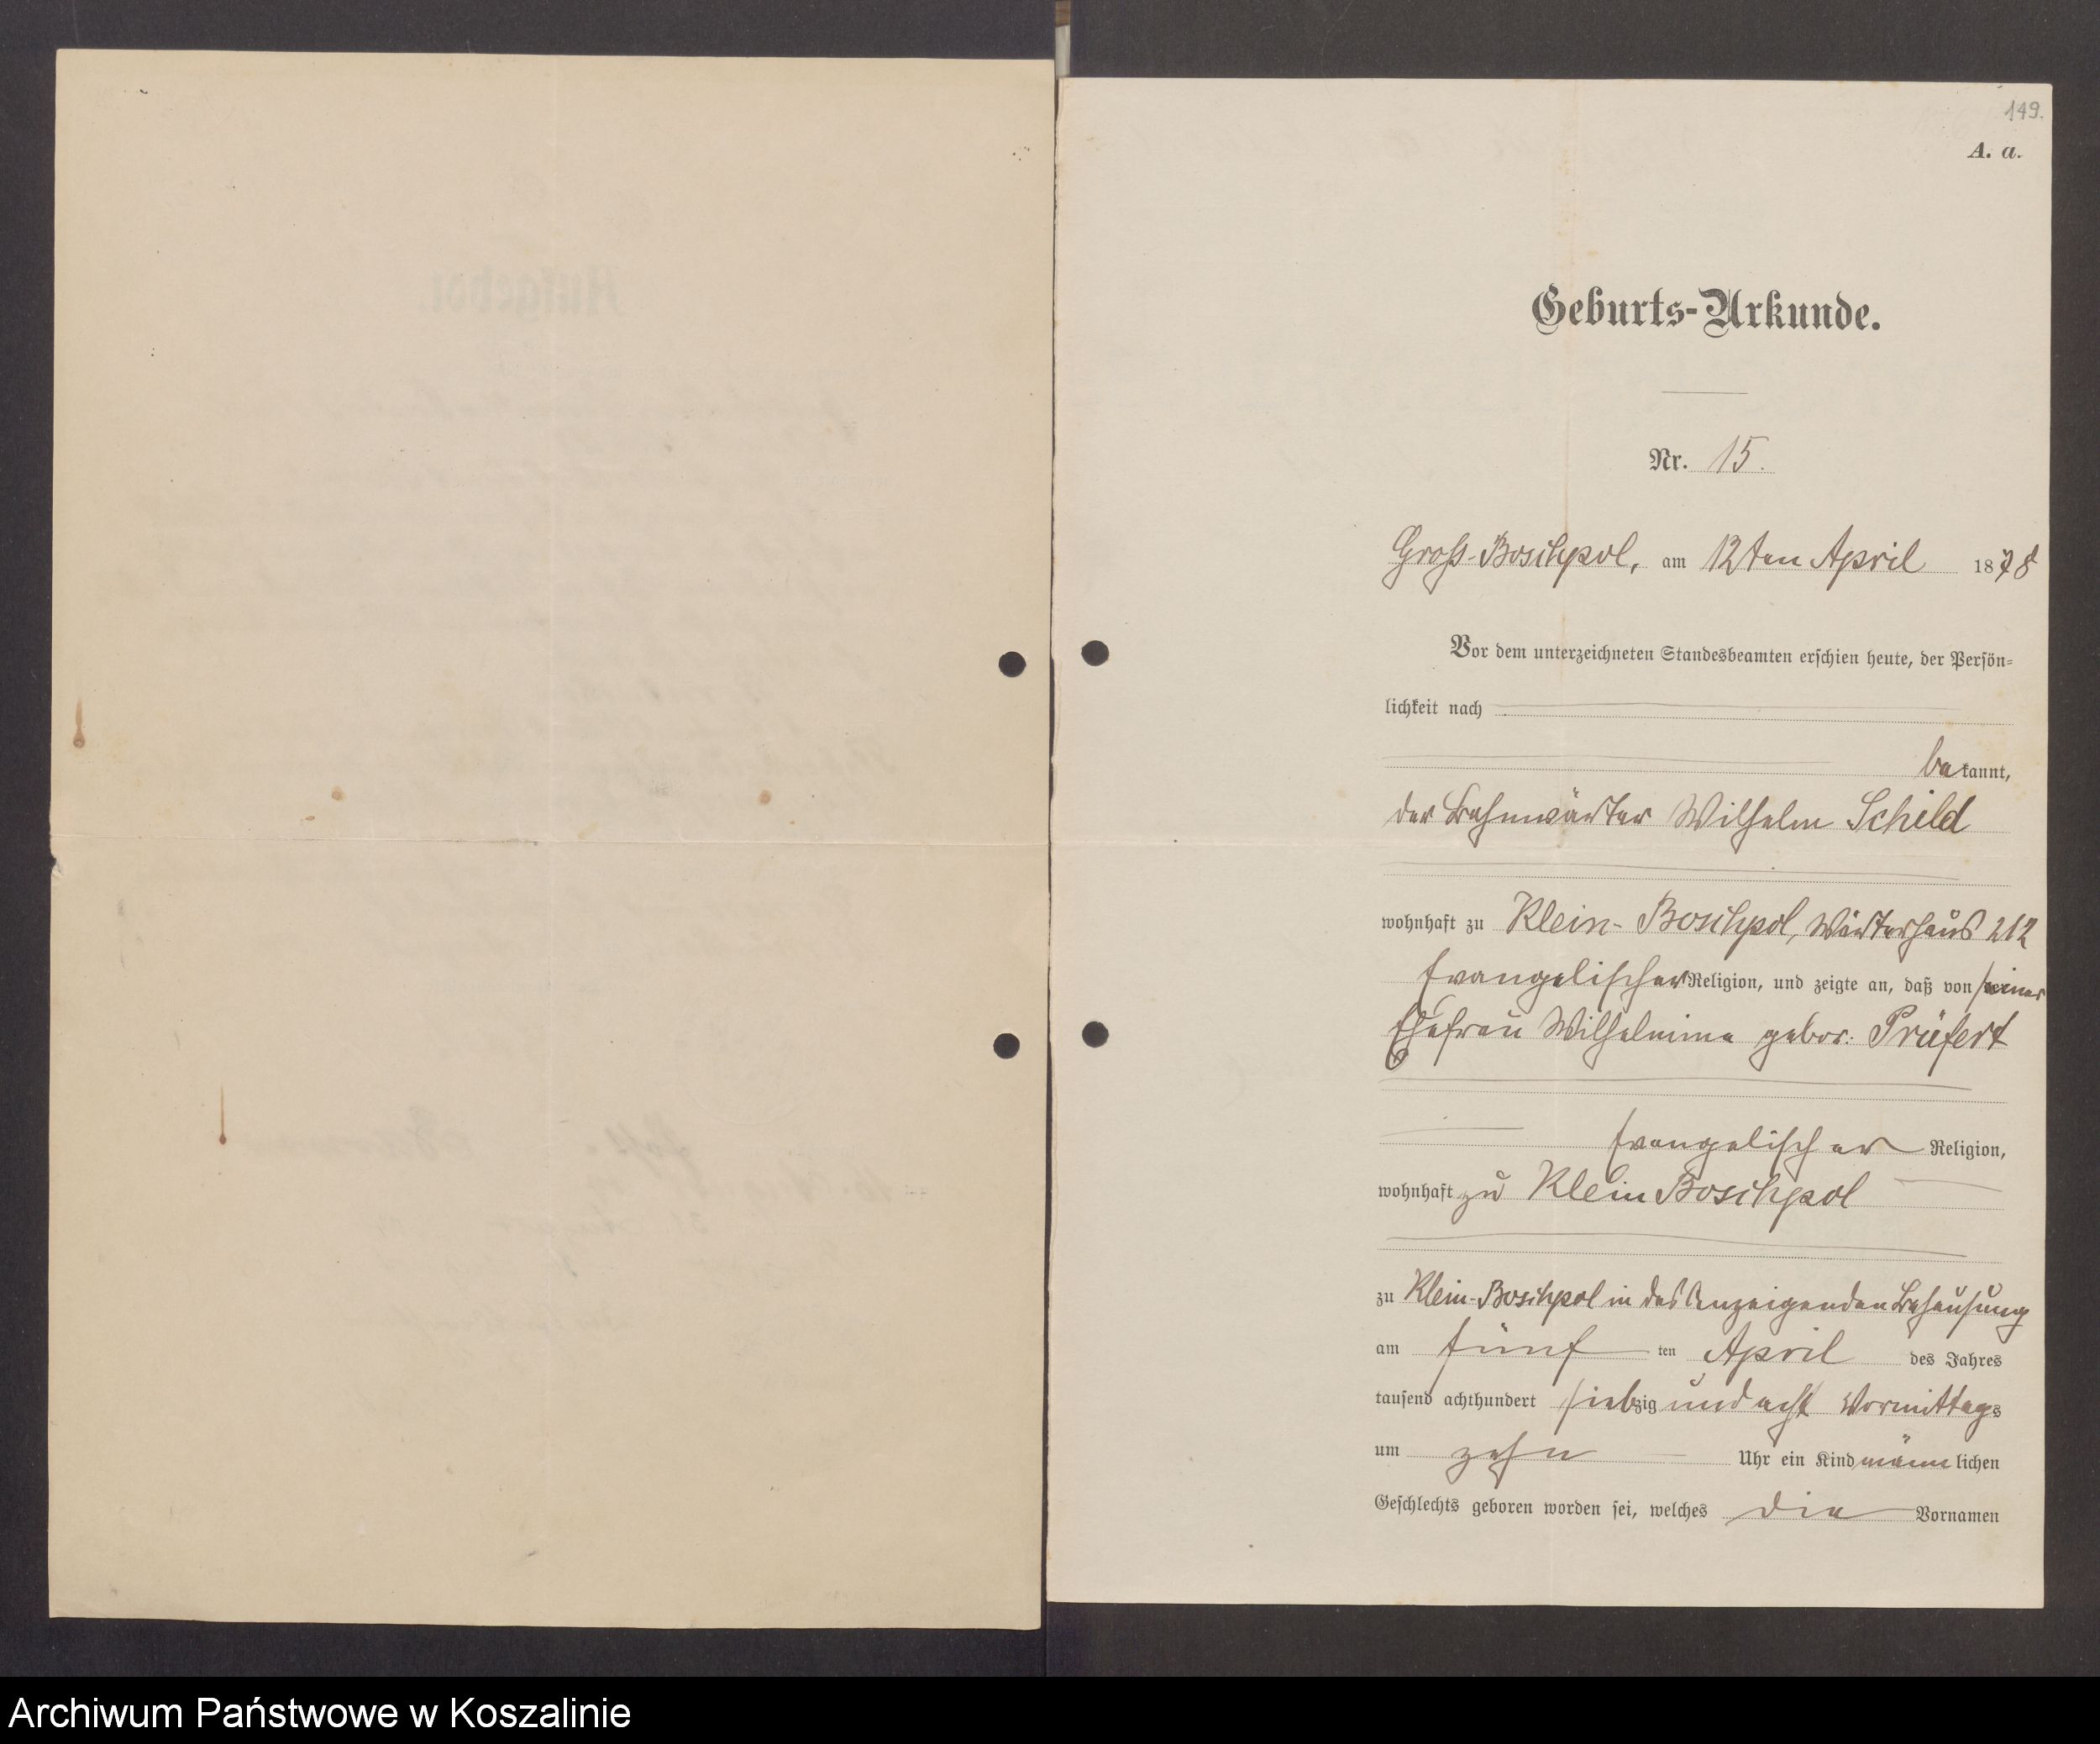 149.
A. a.
Geburts-Urkunde.
Nr. 15.
Groß-Boschpol, am 12ten April 1878
Vor dem unterzeichneten Standesbeamten erschien heute, der Persön-
lichkeit nach
bekannt,
der Bahnwärter Wilhelm Schild
wohnhaft zu Klein-Boschpol, Wärterhaus 212
evangelischer Religion, und zeigte an, daß von seiner
Ehefrau Wilhelmine gebor: Prüfert
evangelischer Religion,
wohnhaft zu Klein Boschpol
zu Klein-Boschpol in des Anzeigenden Behausung
am fünf ten April des Jahres
tausend achthundert siebzig und acht Vormittags
um zehn Uhr ein Kind männlichen
Geschlechts geboren worden sei, welches die Vornamen
Archiwum Państwowe w Koszalinie